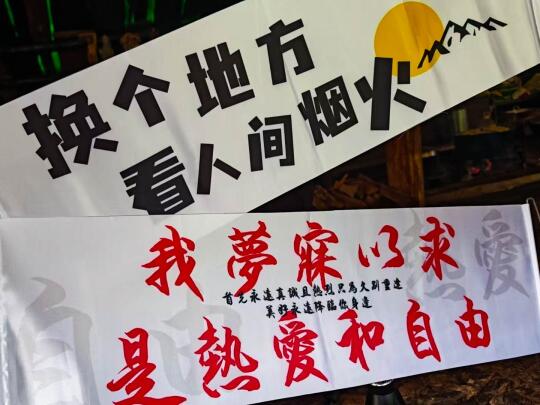 换个地方
看人间烟火
我夢寐以求
首先永遠真誠且熱烈只為久別重逢
美好永遠降臨你身邊
是熱愛和自由
熱愛
自由